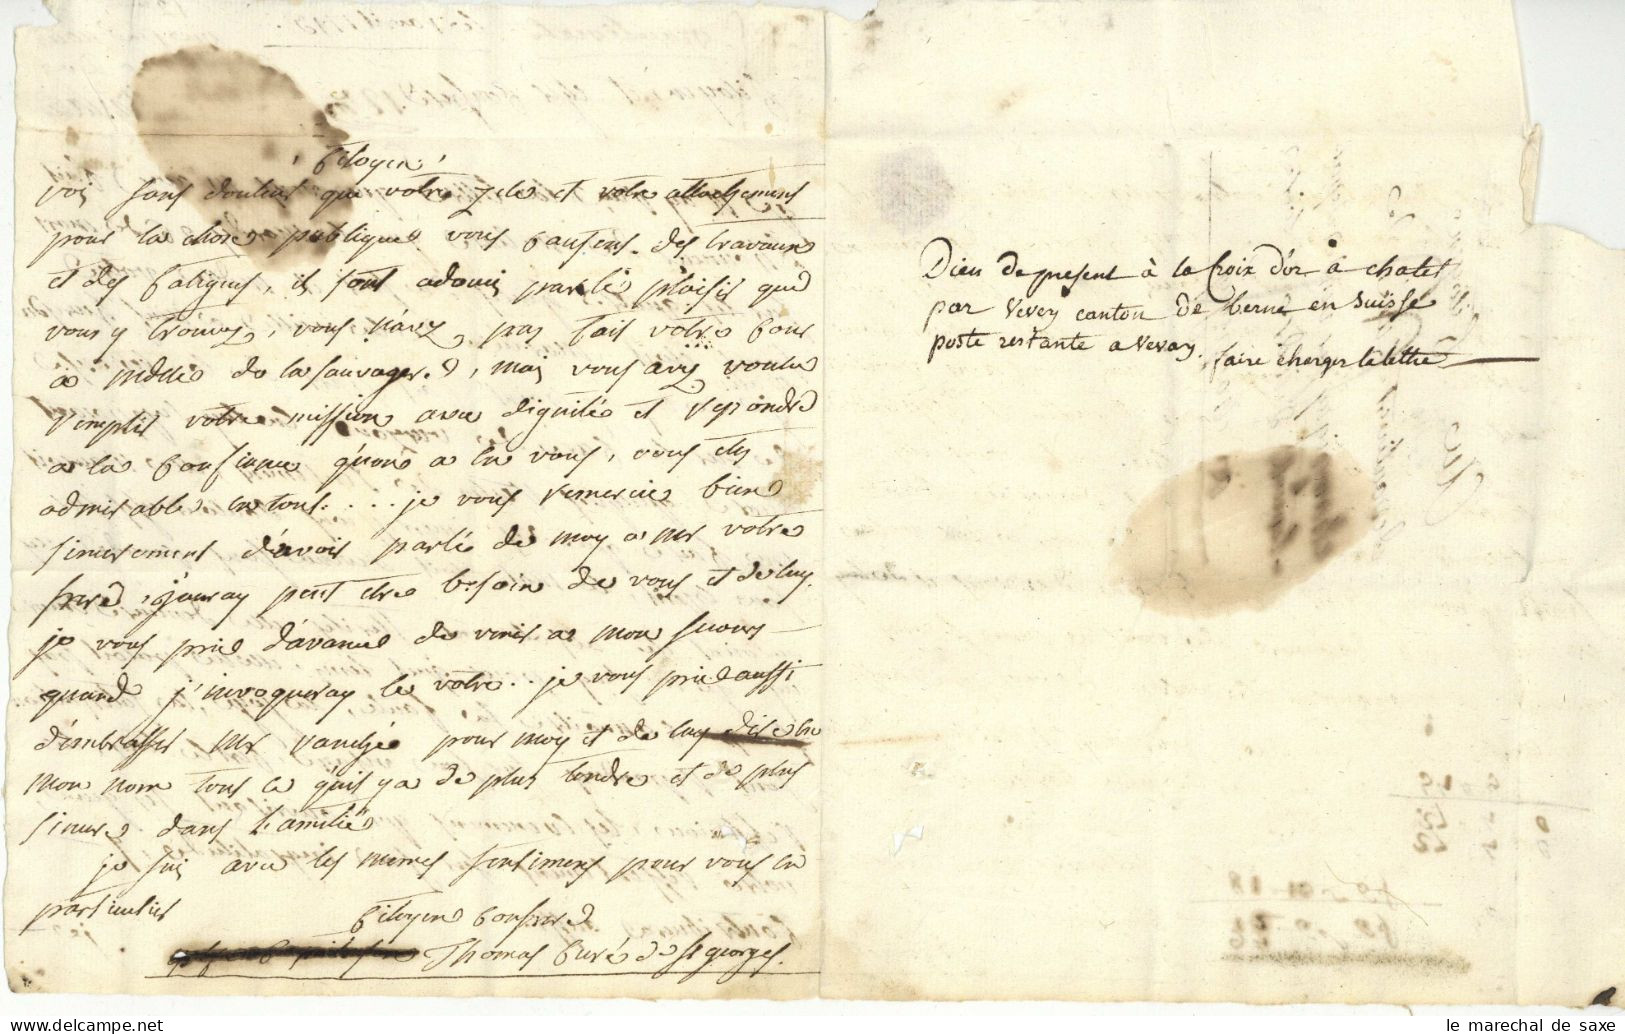 Citoyen
voi sans doutes que votre zele et votre attachement
pour la chose publique vous causent des travaux
et des fatigues, ils sont adouci par le plaisir que
vous y trouvez, vous n'avez pas fait votre cour
a de la , mais vous avez voulu
remplir votre mission avec dignité et repondre
a la confiance qu'on a en vous, vous etes
admirable en tout. . . . je vous remercie bien
sincerement d'avoir parlé de moy a Mr votre
frere, j'auray peut etre besoin de vous et de luy.
je vous prie d'avance de venir a mon secours
quand j'invoqueray le votre . . je vous prie aussi
d'embrasser Mr pour moy et de luy dire en
mon nom tout ce qu'il y a de plus tendre et de plus
sincere dans l'amitié
je suis avec les memes sentimens pour vous en
particulier
Citoyen confrere
Thomas Curé de St georges.
Dieu de present à la Croix d'or à chatel
par Vevey canton de berne en Suisse
poste restante a Vevay.
faire charger la lettre
le marechal de saxe